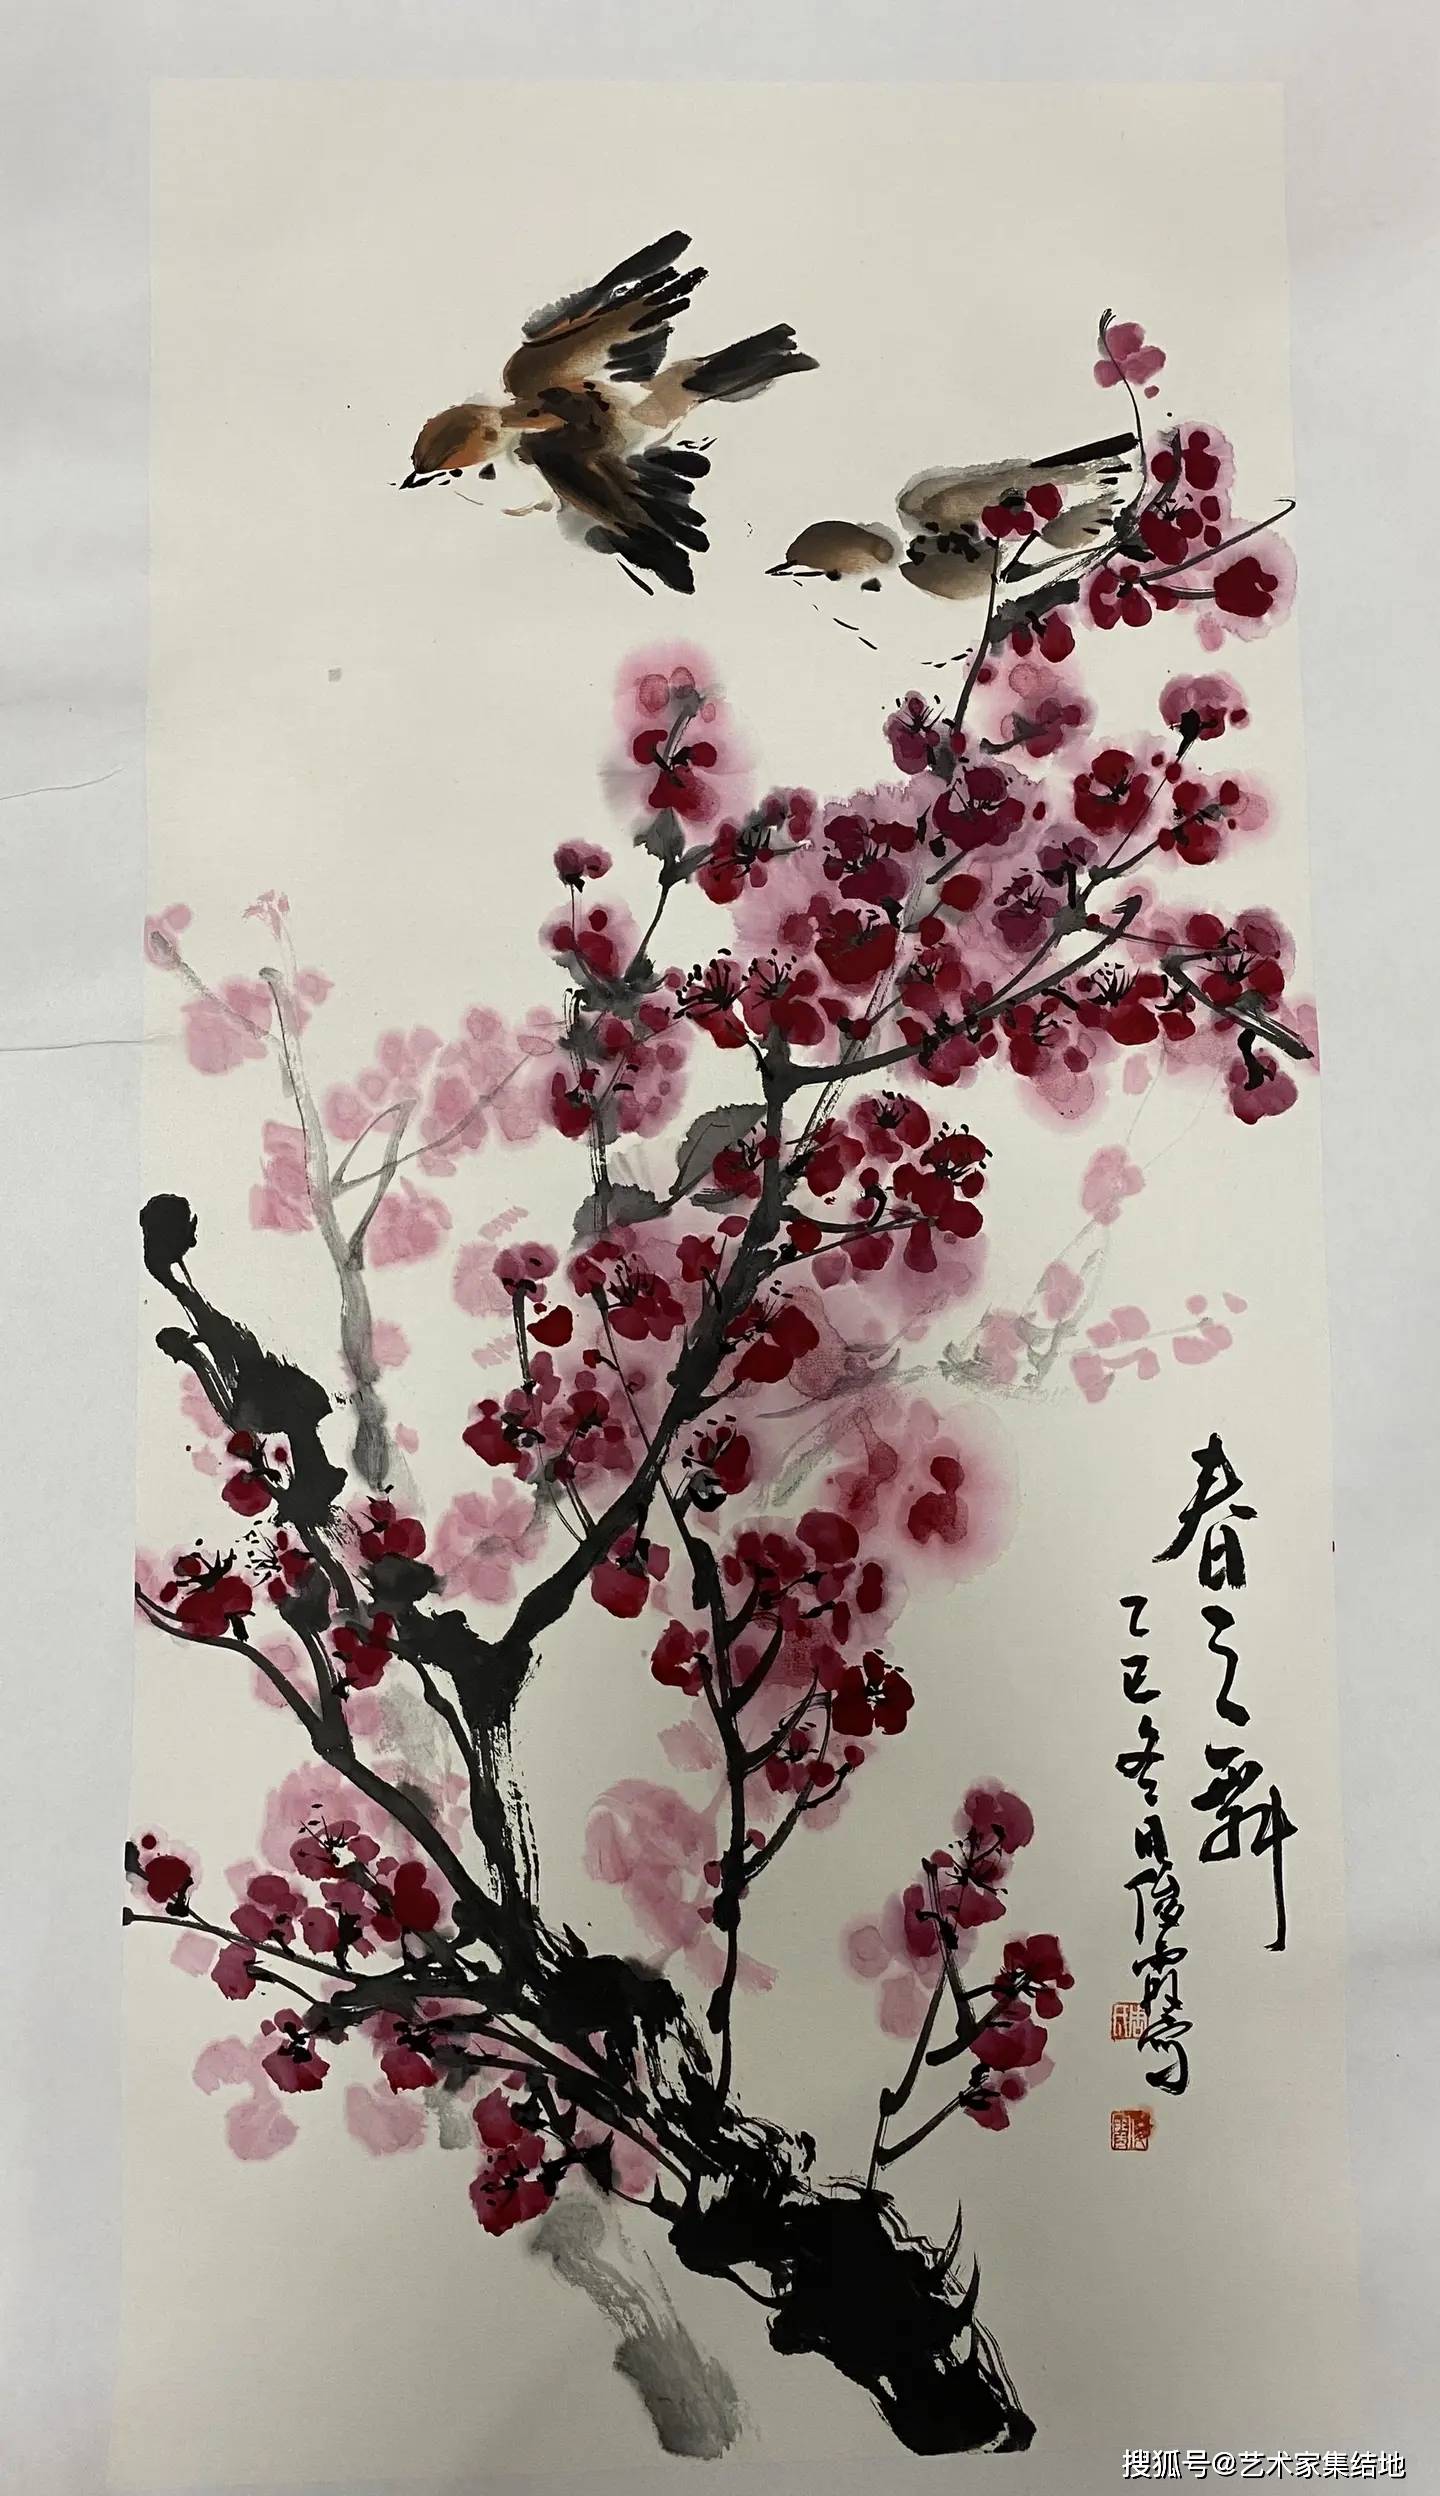 春之舞
乙巳冬月俊霞写
搜狐号@艺术家集结地